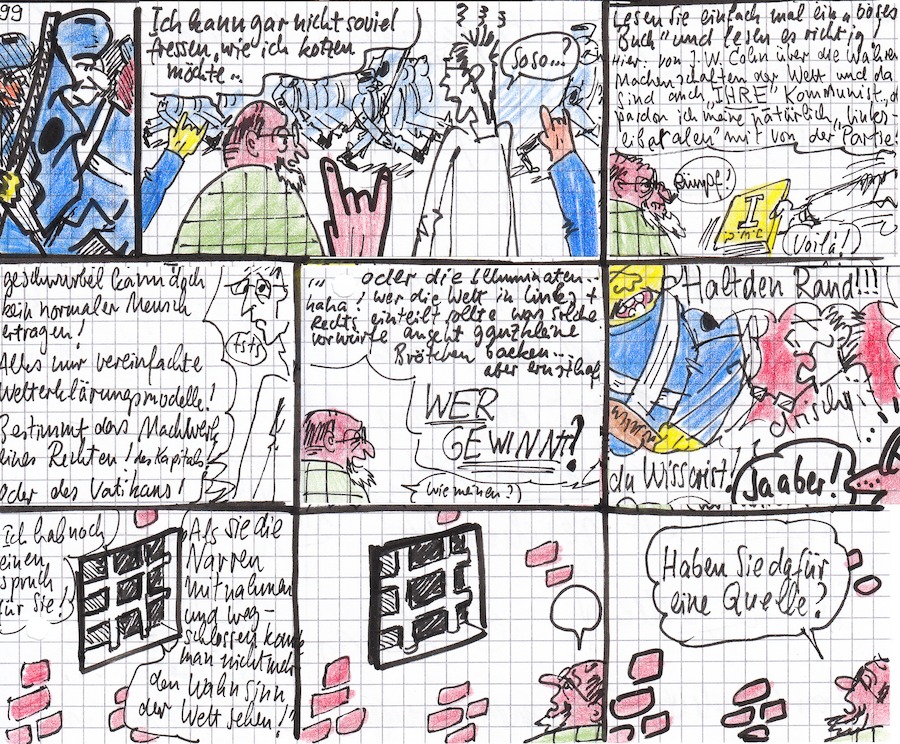 99
Ich kann gar nicht soviel
fressen, wie ich kotzen
möchte..
Soso...?
Lesen Sie einfach mal ein „böses
Buch" und lesen es richtig!
Hier: von J.W. Cohn über die Wahren
Machenschaften der Welt und da
sind auch „IHRE" Kommunist,
pardon ich meine natürlich „links-
liberalen" mit von der Partie!
Rümpf!
I
J.W.C
(Voilà!)
geschwurbel kann doch
kein normaler Mensch
ertragen!
Alles nur vereinfachte
Welterklärungsmodelle!
Bestimmt das Machwerk
eines Rechten! des Kapitals
Oder des Vatikans!
tsts
oder die Illuminaten..
haha! wer die Welt in links +
Rechts einteilt sollte was solche
vorwürfe angeht ganz kleine
Brötchen backen...
aber ernsthaft
WER
GEWINNT?
(wie meinen?)
Halt den Rand!!!
du Wisserist!
Jaaber!
Ich hab noch
einen
spruch
für Sie!
Als sie die
Narren
mitnahmen
und weg-
schlossen konnte
man nicht mehr
den Wahnsinn
der Welt sehen!
Haben Sie dafür
eine Quelle?